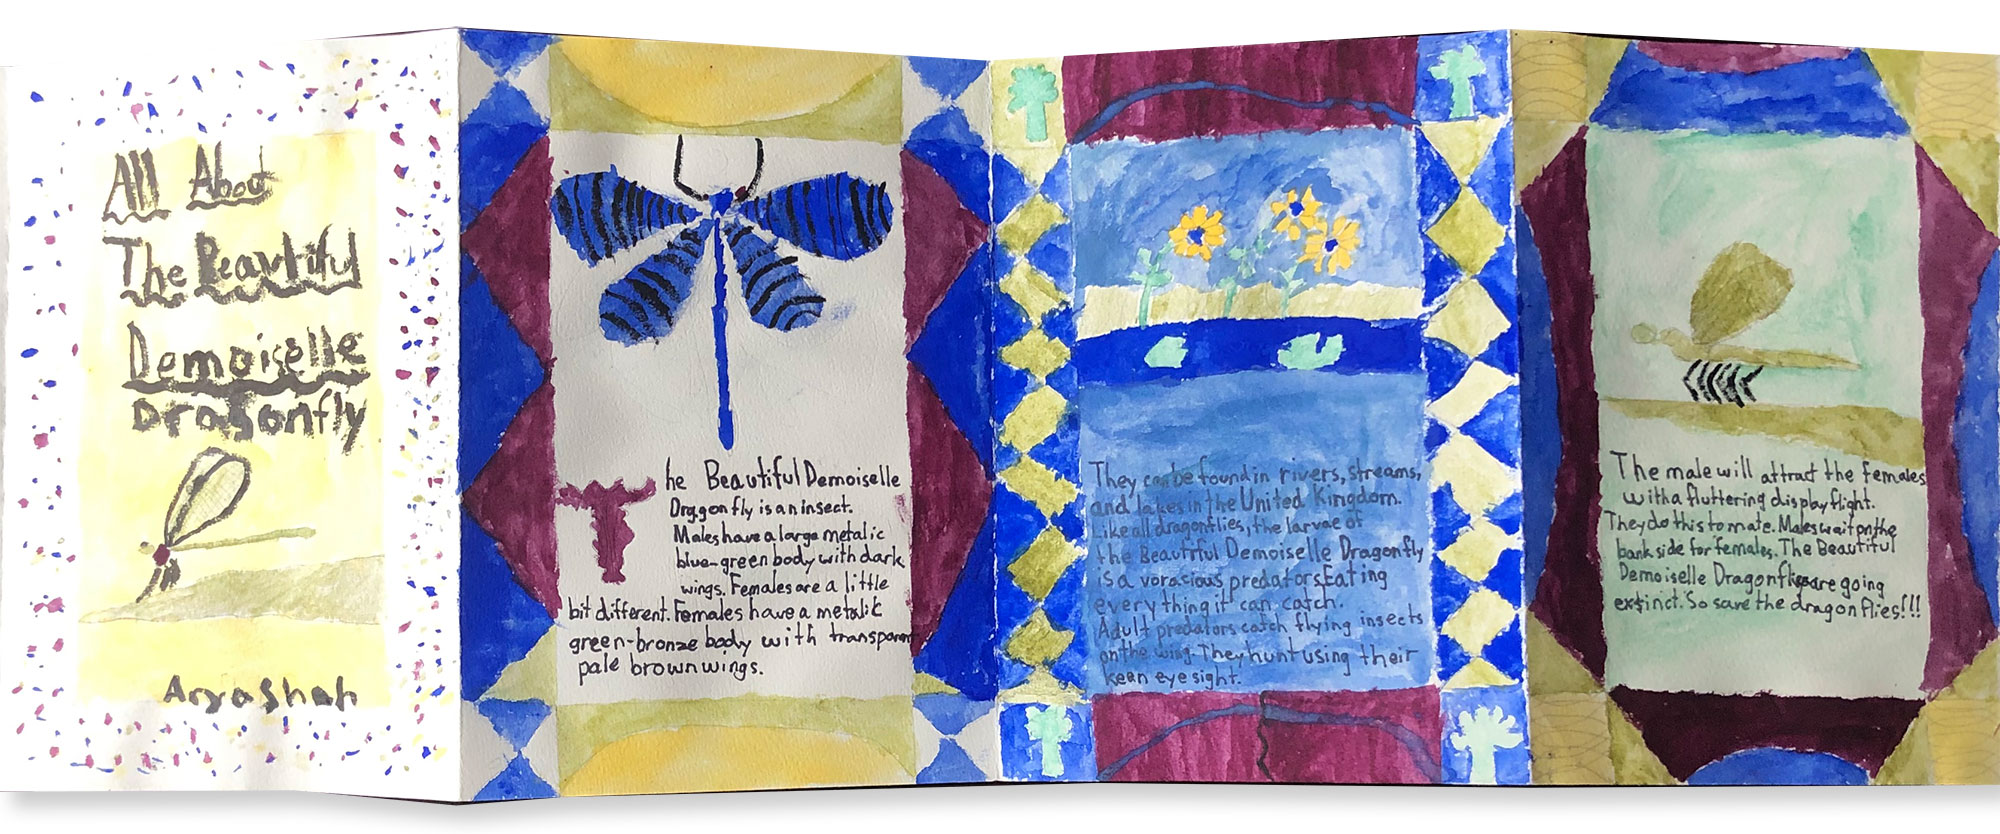 All About
The Beautiful
Demoiselle
Dragonfly
Arya Shah
The Beautiful Demoiselle
Draggon fly is an insect.
Males have a large metalic
blue-green body with dark
wings. Females are a little
bit different. Females have a metalic
green-bronze body with transparent
pale brown wings.
They can be found in rivers, streams,
and lakes in the United Kingdom.
Like all dragonflies, the larvae of
the Beautiful Demoiselle Dragonfly
is a voracious predators. Eating
everything it can catch.
Adult predators catch flying insects
on the wing. They hunt using their
keen eye sight.
The male will attract the females
with a fluttering display flight.
They do this to mate. Males wait on the
bank side for females. The Beautiful
Demoiselle Dragonflys are going
extinct. So save the dragon flies!!!